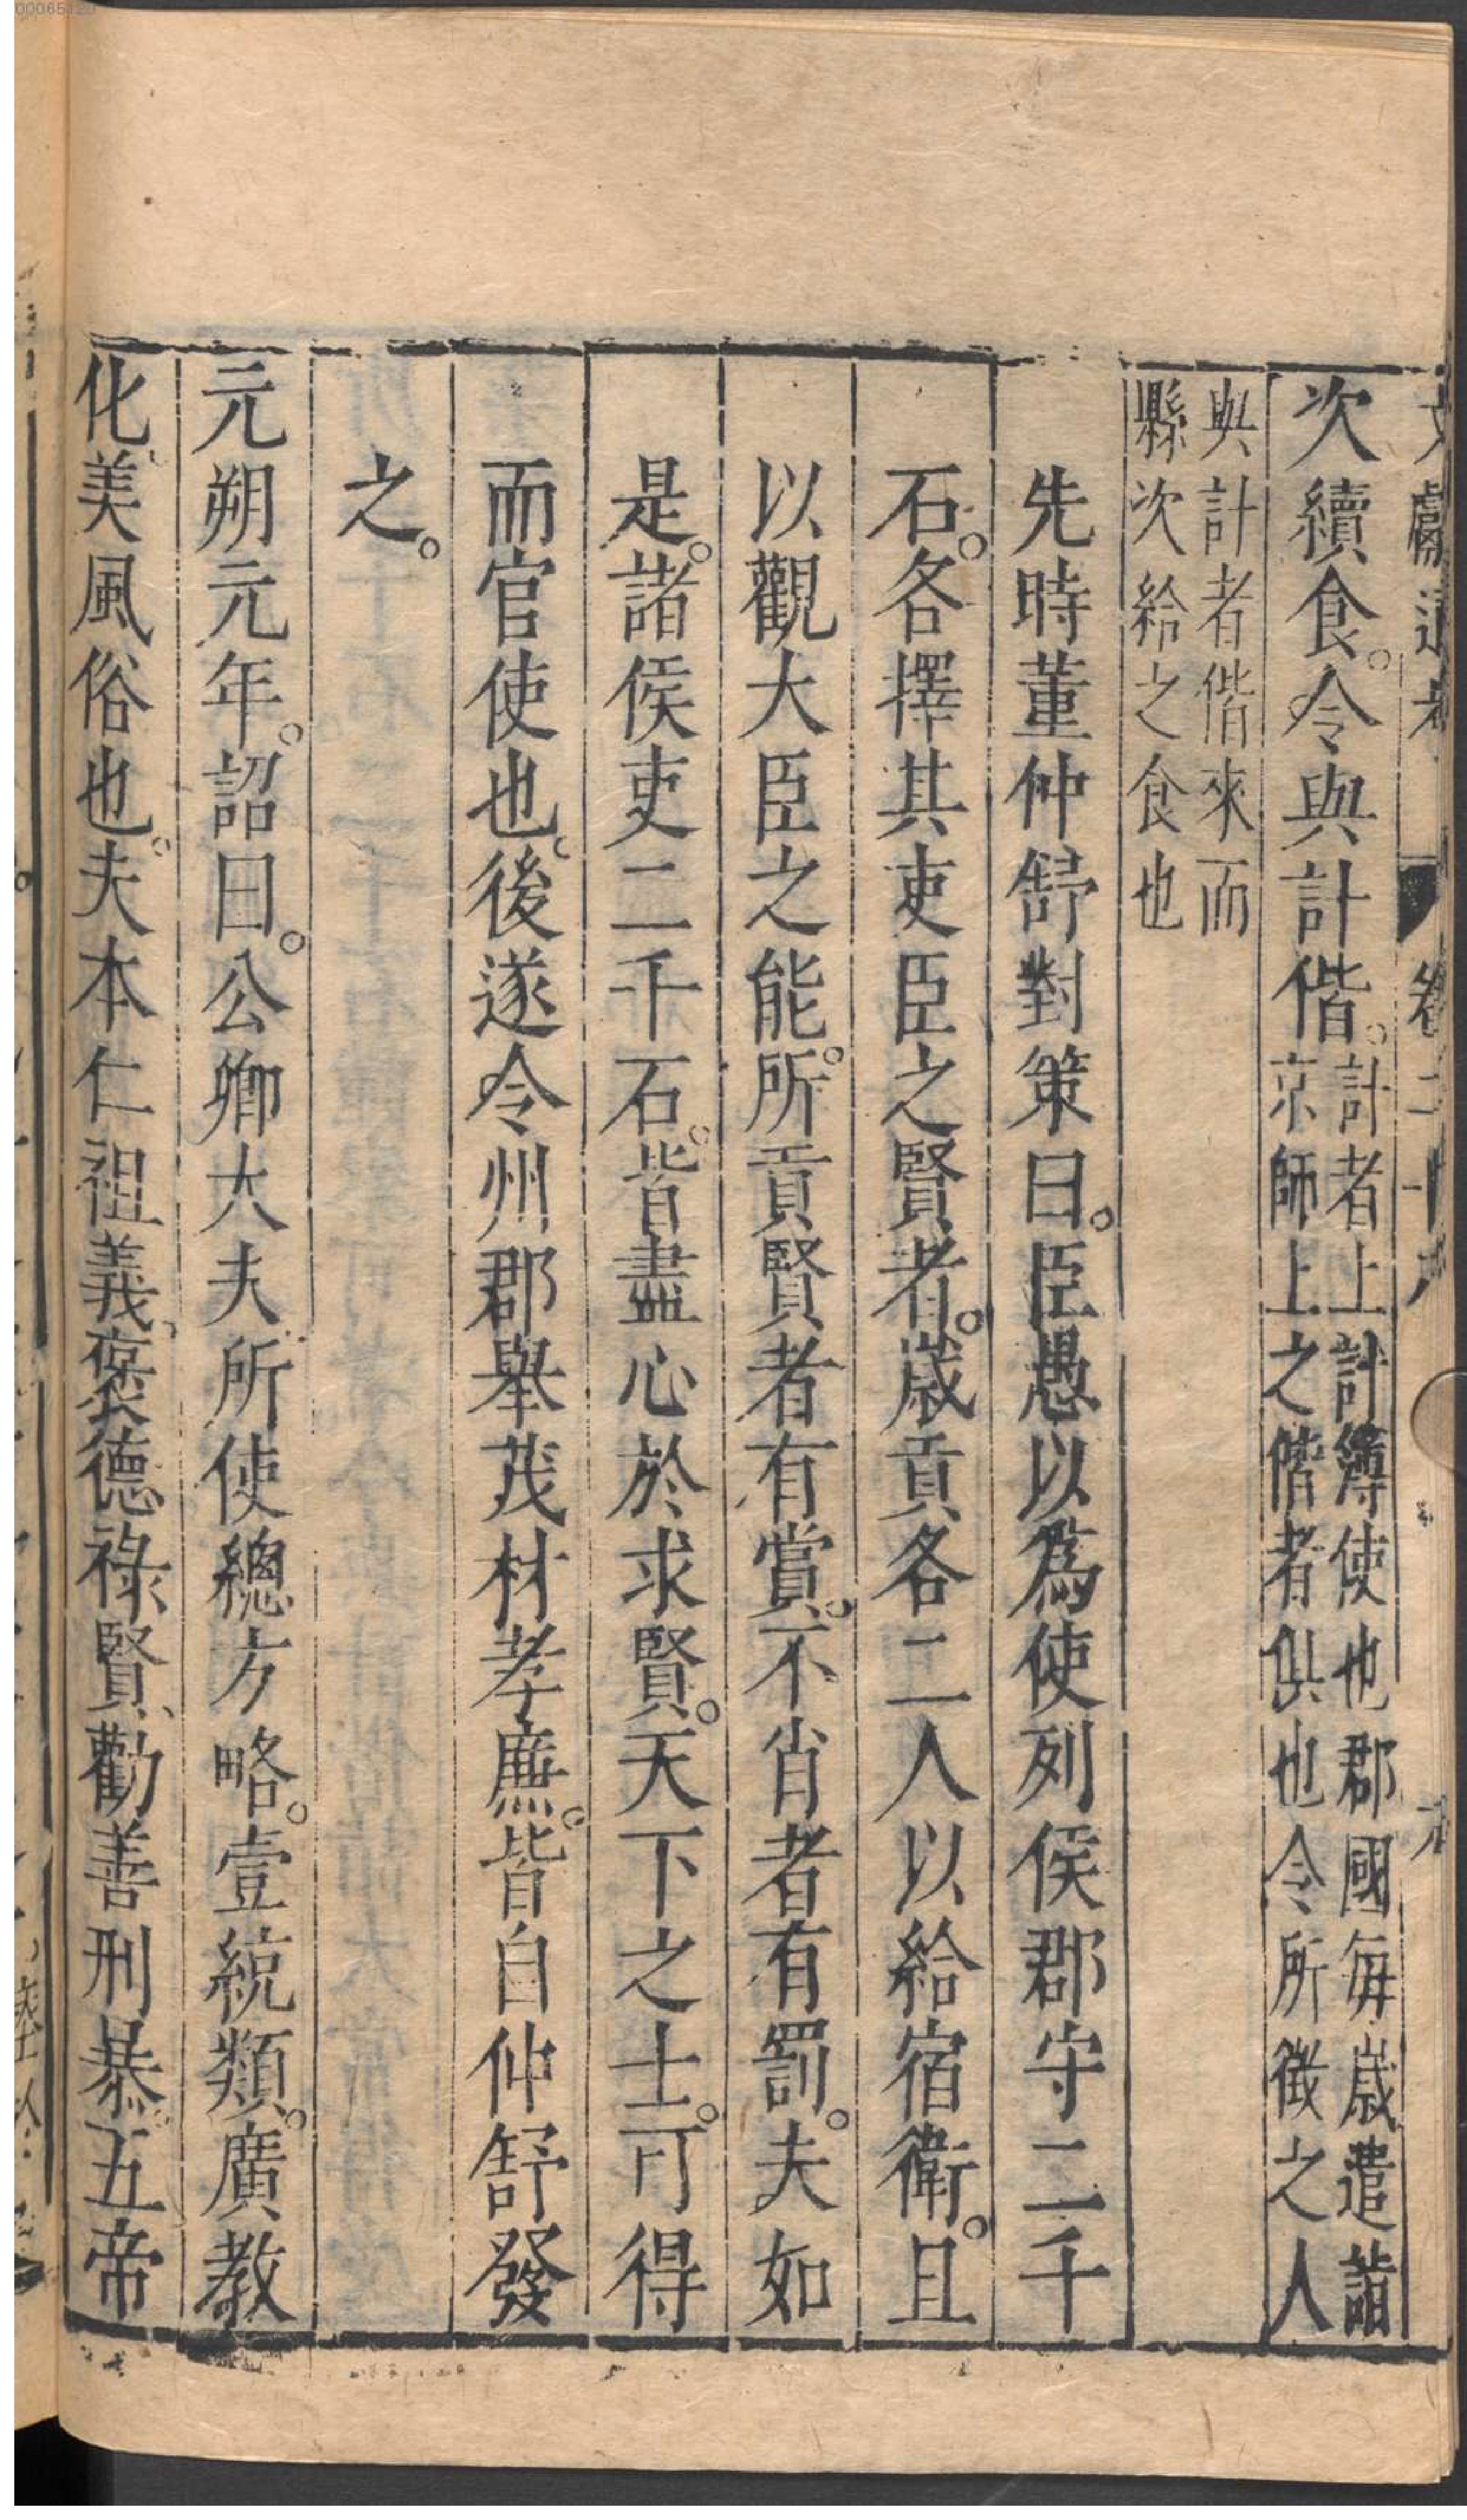 00065120
文獻通考 卷二十八
次續食。令與計偕。計者上計簿使也郡國每歲遣詣
京師上之偕者俱也令所徵之人
與計者偕來而
縣次給之食也
先時董仲舒對策曰。臣愚以爲使列侯郡守二千
石。各擇其吏臣之賢者。歲貢各二人以給宿衛。且
以觀大臣之能。所貢賢者有賞。不肖者有罰。夫如
是。諸侯吏二千石。皆盡心於求賢。天下之士。可得
而官使也。後遂令州郡舉茂材孝廉。皆自仲舒發
之。
元朔元年。詔曰。公卿大夫。所使總方略。壹統類。廣教
化。美風俗也。夫本仁祖義。褒德祿賢、勸善刑暴。五帝